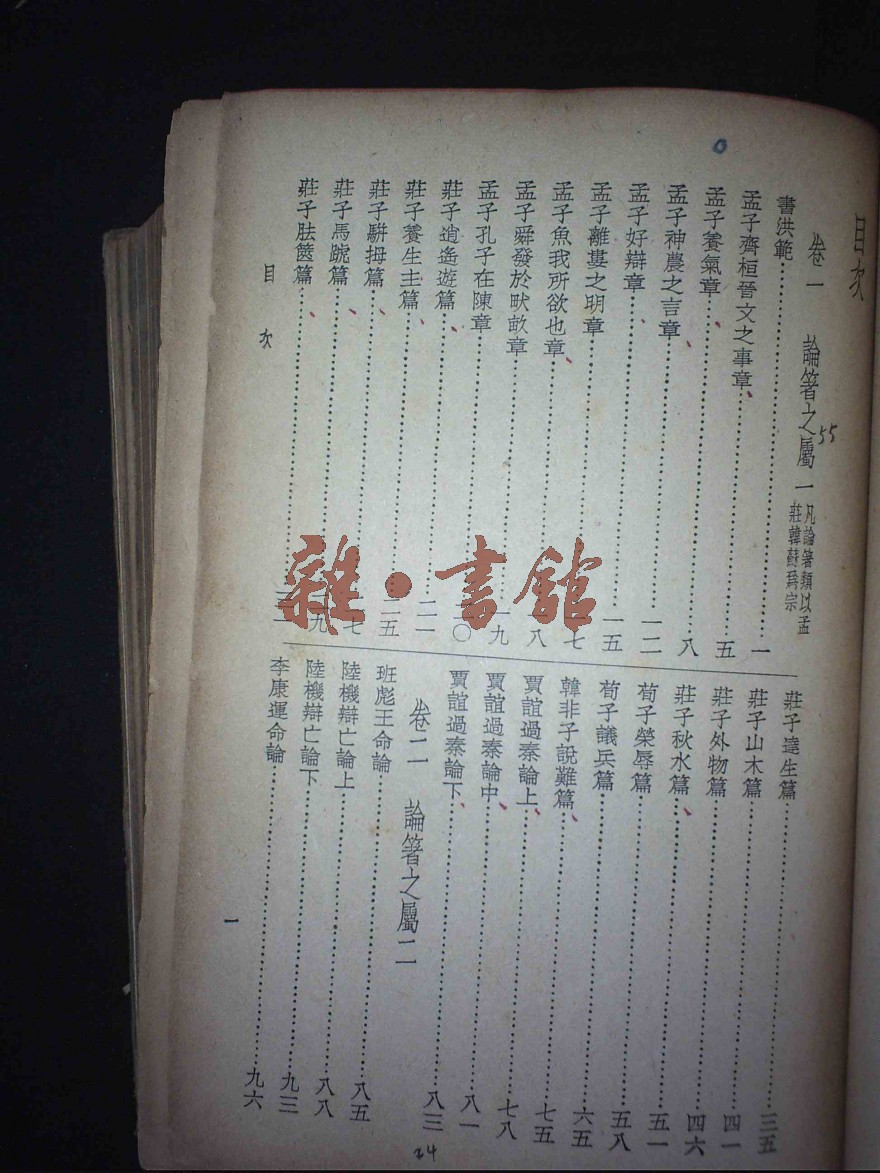 目次
卷一 論箸之屬一 凡論箸類以孟
莊韓蘇為宗
書洪範 一
孟子齊桓晉文之事章 五
孟子養氣章 八
孟子神農之言章 一二
孟子好辯章 一五
孟子離婁之明章 一七
孟子魚我所欲也章 八
孟子舜發於畎畝章 九
孟子孔子在陳章 〇
莊子逍遙遊篇 二一
莊子養生主篇 二五
莊子駢拇篇 七
莊子馬蹏篇 九
莊子胠篋篇
莊子達生篇 三五
莊子山木篇 四一
莊子外物篇 四六
莊子秋水篇 五一
荀子榮辱篇 五八
荀子議兵篇 六五
韓非子說難篇 七五
賈誼過秦論上 七八
賈誼過秦論中 八一
賈誼過秦論下 八三
卷二 論箸之屬二
班彪王命論 八五
陸機辯亡論上 八八
陸機辯亡論下 九三
李康運命論 九六
目次
一
55
24
雜·書館